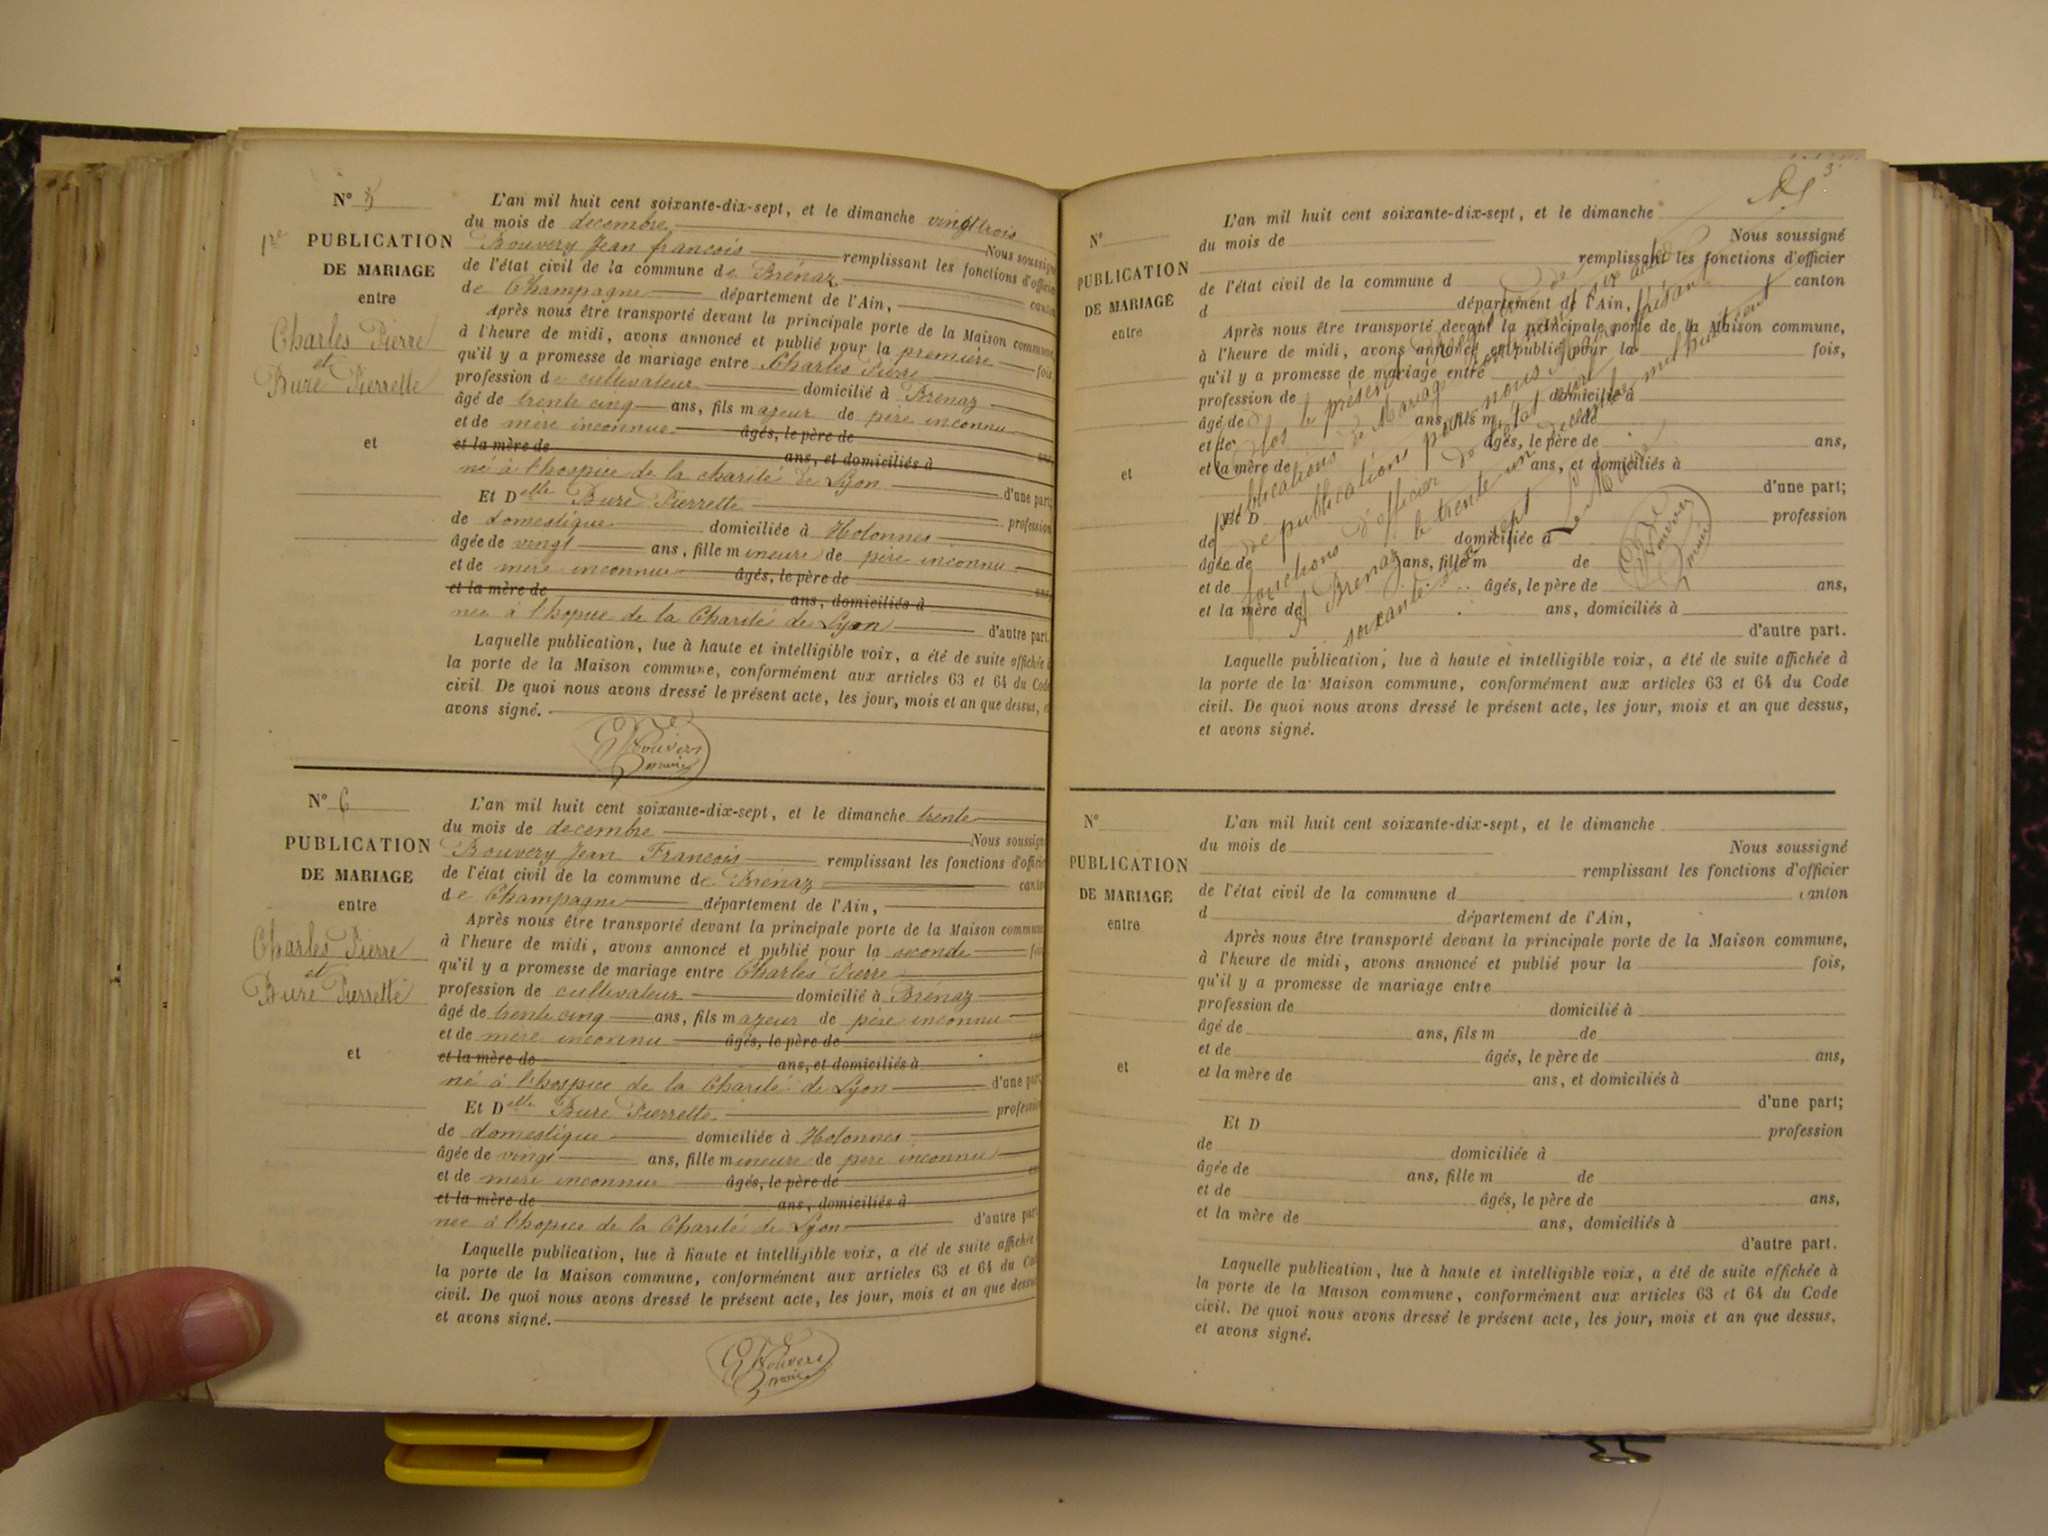 N° 5
1re PUBLICATION
DE MARIAGE
entre
Charles Pierre
et
Buré Pierrette
et
L'an mil huit cent soixante-dix-sept, et le dimanche vingt trois
du mois de decembre Nous soussigné
Bouvery Jean francois remplissant les fonctions d'officier
de l'état civil de la commune de Brénaz canton
de Champagne département de l'Ain,
Après nous être transporté devant la principale porte de la Maison commune,
à l'heure de midi, avons annoncé et publié pour la première fois,
qu'il y a promesse de mariage entre Charles Pierre
profession de cultivateur domicilié à Brénaz
âgé de trente cinq ans, fils majeur de père inconnu
et de mère inconnue âgés, le père de ans,
et la mère de ans, et domiciliés à
né à l'hospice de la charité de Lyon d'une part;
Et Delle Buré Pierrette profession
de domestique domiciliée à Hotonnes
âgée de vingt ans, fille mineure de père inconnu
et de mère inconnue âgés, le père de ans,
et la mère de ans, domiciliés à
née à l'hopice de la Charité de Lyon d'autre part.
Laquelle publication, lue à haute et intelligible voix, a été de suite affichée à
la porte de la Maison commune, conformément aux articles 63 et 64 du Code
civil. De quoi nous avons dressé le présent acte, les jour, mois et an que dessus, et
avons signé.
Bouvery
maire
N° 6
PUBLICATION
DE MARIAGE
entre
Charles Pierre
et
Buré Pierrette
et
L'an mil huit cent soixante-dix-sept, et le dimanche trente
du mois de decembre Nous soussigné
Bouvery Jean Francois remplissant les fonctions d'officier
de l'état civil de la commune de Brénaz canton
de Champagne département de l'Ain,
Après nous être transporté devant la principale porte de la Maison commune
à l'heure de midi, avons annoncé et publié pour la seconde fois
qu'il y a promesse de mariage entre Charles Pierre
profession de cultivateur domicilié à Brénaz
âgé de trente cinq ans, fils majeur de père inconnu
et de mère inconnu âgés, le père de ans
et la mère de ans, et domiciliés à
né à l'hospice de la Charité de Lyon d'une part
Et Delle Buré Pierrette profession
de domestique domiciliée à Hotonnes
âgée de vingt ans, fille mineure de père inconnu
et de mère inconnue âgés, le père de ans
et la mère de ans, domiciliés à
née à l'hopice de la Charité de Lyon d'autre part
Laquelle publication, lue à haute et intelligible voix, a été de suite affichée
la porte de la Maison commune, conformément aux articles 63 et 64 du Code
civil. De quoi nous avons dressé le présent acte, les jour, mois et an que dessus
et avons signé.
Bouvery
maire
3
N°
PUBLICATION
DE MARIAGE
entre
et
L'an mil huit cent soixante-dix-sept, et le dimanche
du mois de Nous soussigné
remplissant les fonctions d'officier
de l'état civil de la commune d canton
d département de l'Ain,
Après nous être transporté devant la principale porte de la Maison commune,
à l'heure de midi, avons annoncé et publié pour la fois,
qu'il y a promesse de mariage entre
profession de domicilié à
âgé de ans, fils m de
et de âgés, le père de ans,
et la mère de ans, et domiciliés à
d'une part;
Et D profession
de domiciliée à
âgée de ans, fille m de
et de âgés, le père de ans,
et la mère de ans, domiciliés à
d'autre part.
Laquelle publication, lue à haute et intelligible voix, a été de suite affichée à
la porte de la Maison commune, conformément aux articles 63 et 64 du Code
civil. De quoi nous avons dressé le présent acte, les jour, mois et an que dessus,
et avons signé.
Clos le présent
publications de Mariage
de publications par nous
fonctions d'officier de l'état civil
A Brenaz le trente un decembre mil huit cent
soixante dix sept
Le Maire
Bouvery
maire
N°
PUBLICATION
DE MARIAGE
entre
et
L'an mil huit cent soixante-dix-sept, et le dimanche
du mois de Nous soussigné
remplissant les fonctions d'officier
de l'état civil de la commune d canton
d département de l'Ain,
Après nous être transporté devant la principale porte de la Maison commune,
à l'heure de midi, avons annoncé et publié pour la fois,
qu'il y a promesse de mariage entre
profession de domicilié à
âgé de ans, fils m de
et de âgés, le père de ans,
et la mère de ans, et domiciliés à
d'une part;
Et D profession
de domiciliée à
âgée de ans, fille m de
et de âgés, le père de ans,
et la mère de ans, domiciliés à
d'autre part.
Laquelle publication, lue à haute et intelligible voix, a été de suite affichée à
la porte de la Maison commune, conformément aux articles 63 et 64 du Code
civil. De quoi nous avons dressé le présent acte, les jour, mois et an que dessus,
et avons signé.